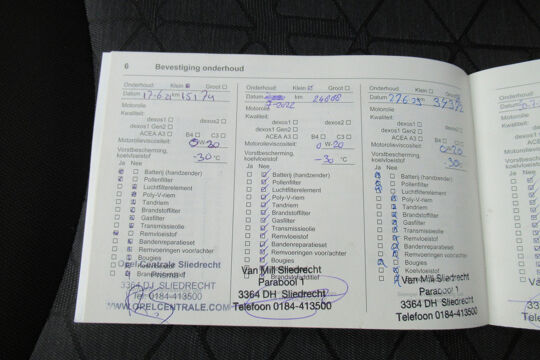 6 Bevestiging onderhoud
Onderhoud: Klein Groot
Datum 17-6-21 km 15174
Motorolie
Kwaliteit:
dexos1 dexos2
dexos1 Gen2
ACEA A3 B4 C3
Motorolieviscositeit: 0 W-20
Vorstbescherming,
koelvloeistof -30 °C
Ja Nee
Batterij (handzender)
Pollenfilter
Luchtfilterelement
Poly-V-riem
Tandriem
Brandstoffilter
Gasfilter
Transmissieolie
Remvloeistof
Bandenreparatieset
Remvoeringen voor/achter
Bougies
Opel Centrale Sliedrecht
3364 DJ SLIEDRECHT
Tel. 0184-413500
WWW.OPELCENTRALE.COM
Onderhoud: Klein Groot
Datum km 24608
Motorolie -2022
Kwaliteit:
dexos1 dexos2
dexos1 Gen2
ACEA A3 B4 C3
Motorolieviscositeit: 0 W-20
Vorstbescherming,
koelvloeistof -30 °C
Ja Nee
Batterij (handzender)
Pollenfilter
Luchtfilterelement
Poly-V-riem
Tandriem
Brandstoffilter
Gasfilter
Transmissieolie
Remvloeistof
Bandenreparatieset
Remvoeringen voor/achter
Bougies
Van Mill Sliedrecht
Parabool 1
3364 DH Sliedrecht
Telefoon 0184-413500
Onderhoud: Klein Groot
Datum 27-6-23 km
Motorolie
Kwaliteit:
dexos1 dexos2
dexos1 Gen2
ACEA A3 B4 C3
Motorolieviscositeit: 0W20
Vorstbescherming,
koelvloeistof -30
Ja Nee
Batterij (handzender)
Pollenfilter
Luchtfilterelement
Poly-V-riem
Tandriem
Brandstoffilter
Gasfilter
Transmissieolie
Remvloeistof
Bandenreparatieset
Remvoeringen voor/achter
Bougies
Van Mill Sliedrecht
Parabool 1
3364 DH Sliedrecht
Telefoon 0184-413500